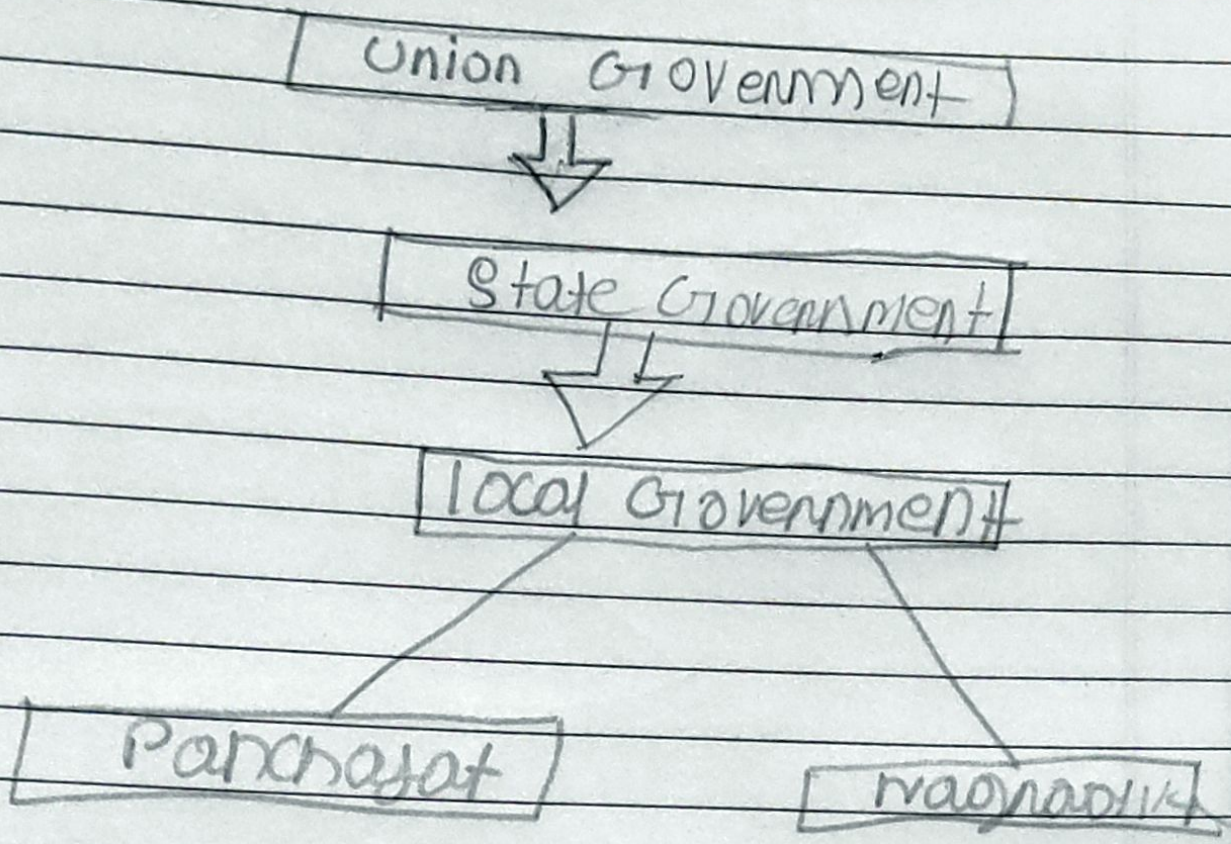 Union Government
State Government
Local Government
Panchayat